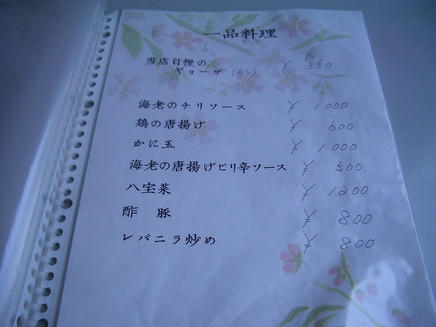 一品料理
当店自慢の
ギョーザ ¥ 350
海老のチリソース ¥ 1000
鶏の唐揚げ ¥ 600
かに玉 ¥ 1,000
海老の唐揚げピリ辛ソース ¥ 500
八宝菜 ¥ 1200
酢豚 ¥ 800
レバニラ炒め ¥ 800